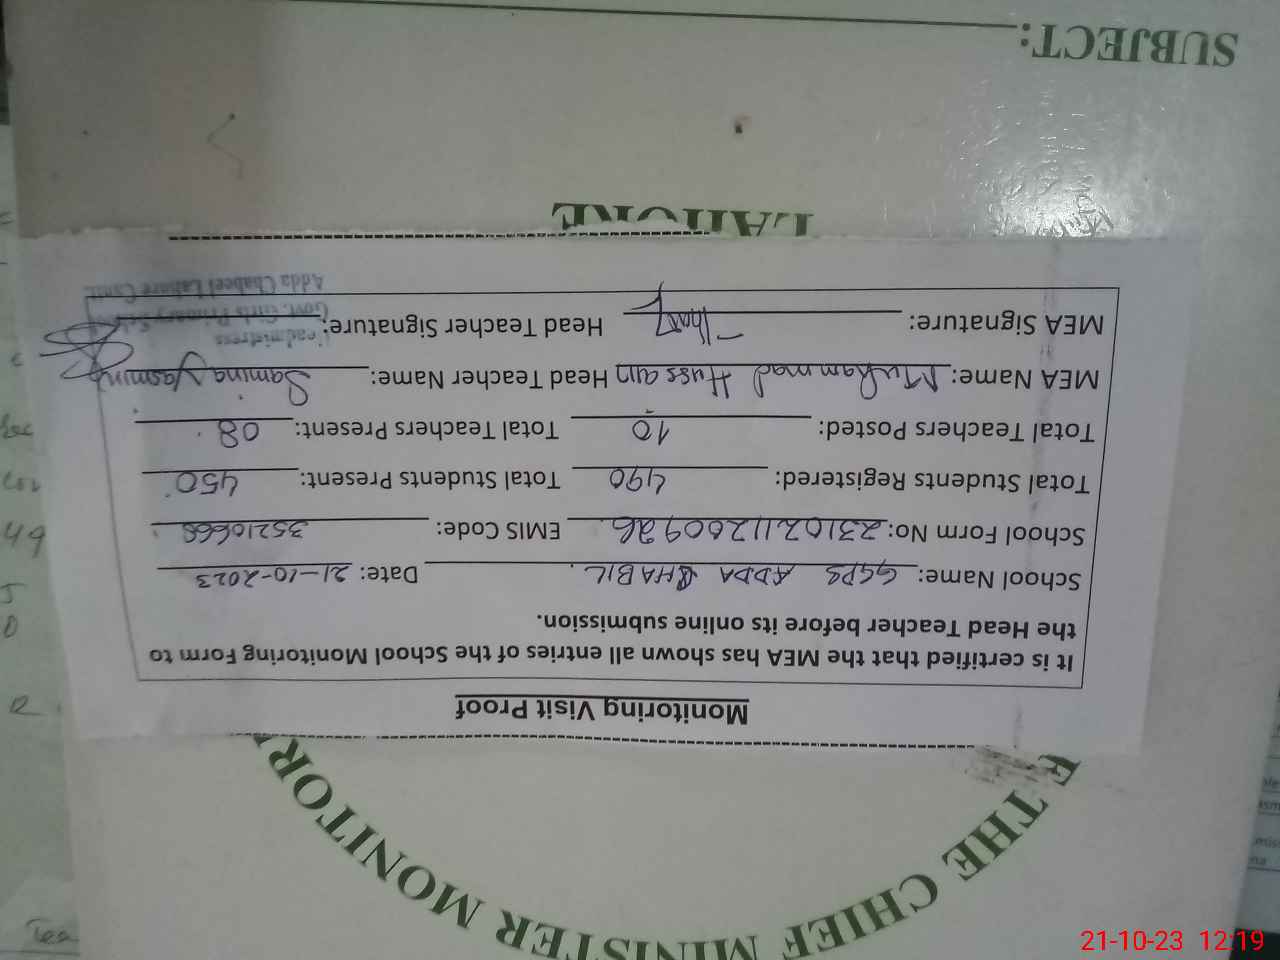 THE CHIEF MINISTER MONITOR
Monitoring Visit Proof
It is certified that the MEA has shown all entries of the School Monitoring Form to
the Head Teacher before its online submission.
School Name: GGPS ADDA CHABIL. Date: 21-10-2023
School Form No: EMIS Code: 35210668
Total Students Registered: 490 Total Students Present: 450
Total Teachers Posted: 10 Total Teachers Present: 08
MEA Name: Muhammad Hussain Head Teacher Name: Samina Yasmin
MEA Signature: Head Teacher Signature:
Headmistress
Govt. Girls Primary
Adda Chabeel Lahore Cantt
LAHORE
SUBJECT:
49
Tea
21-10-23 12:19